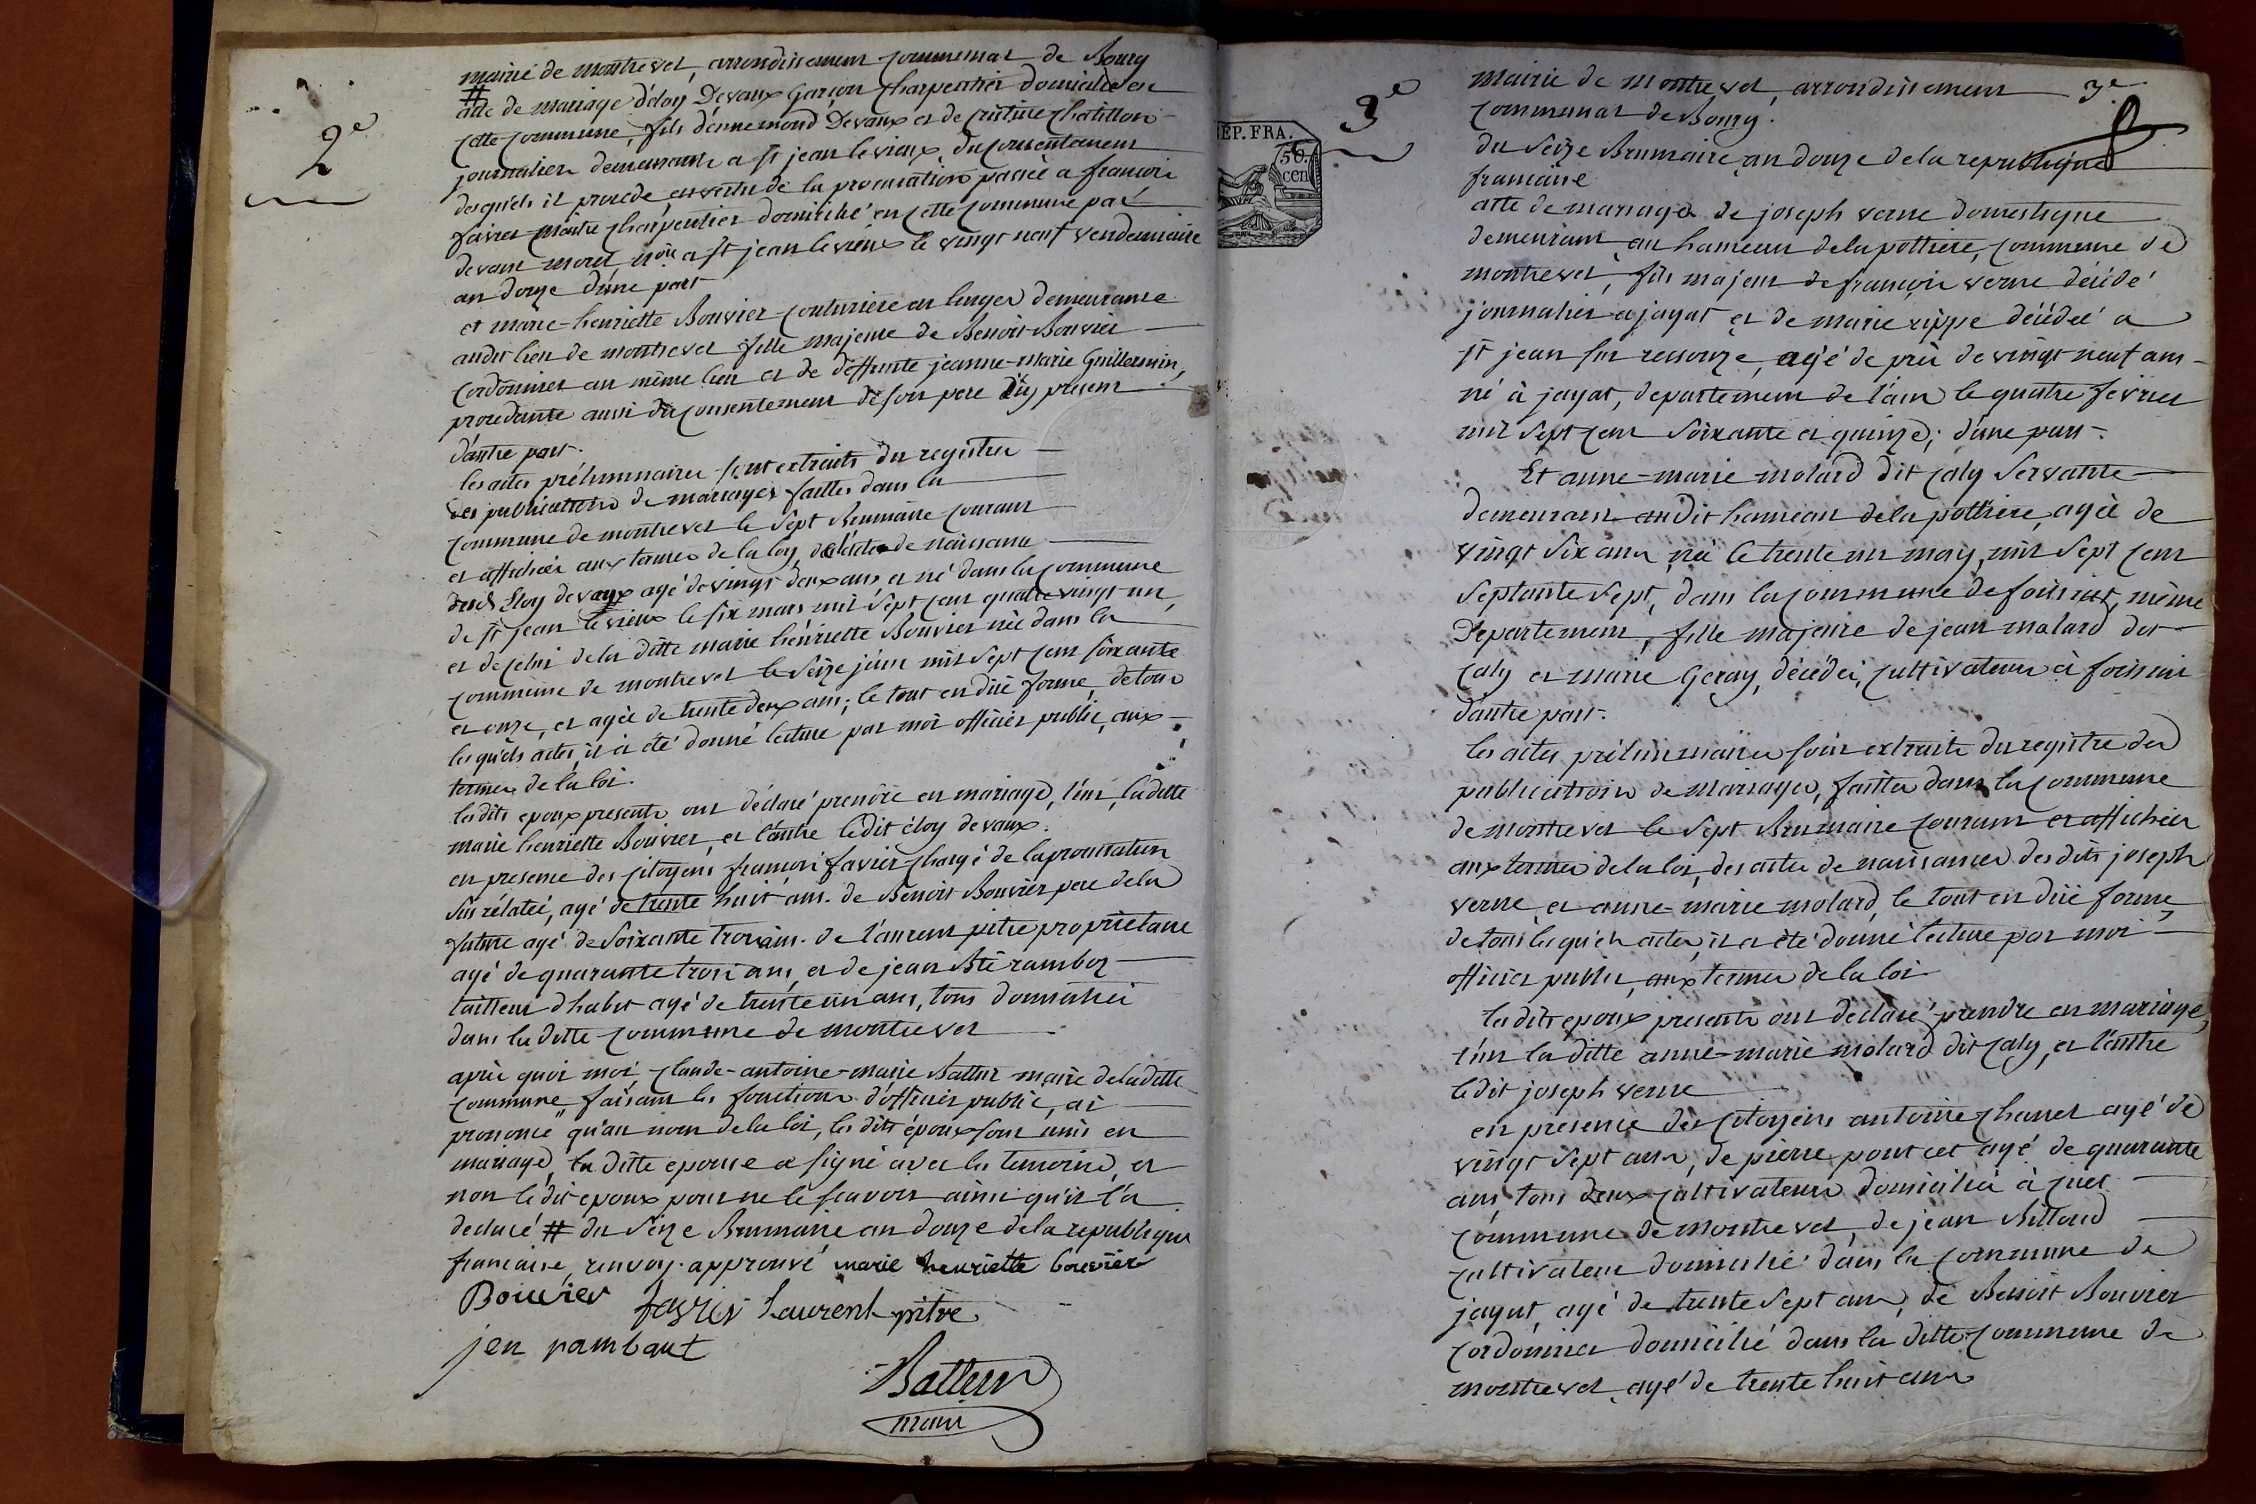 2e
mairie de montrevel, arrondissement communal de Bourg
#
acte de mariage d'éloy Devaux Garçon Charpentier domicilié en
cette commune, fils d'ennemond Devaux et de cristine chatillon
journalier demeurants a st jean le vieux, du consentement
desquels il procede, en vertu de la procuration passée a francois
favier maitre charpentier domicilié en cette commune par
devant moret noire a st jean le vieux le vingt neuf vendemiaire
an douze d'une part
et marie-henriette Bouvier couturiere en linges demeurante
audit lieu de montrevel fille majeure de Benoit Bouvier
cordonnier au même lieu et de deffunte jeanne-marie Guillermin,
procedante aussi du consentement de son pere icy present
d'autre part.
les actes préliminaires sont extraits du registre
des publications de mariages faittes dans la
commune de montrevel le sept Brumaire courant
et affichées aux termes de la loy, de l'acte de naissance
dud. Eloy devaux agé de vingt deux ans et né dans la commune
de st jean le vieux le six mars mil sept cent quatre vingt un,
et de celui de la ditte marie henriette Bouvier née dans la
commune de montrevel le seize juin mil sept cent soixante
et onze, et agée de trente deux ans; le tout en düe forme, de tous
lesquels actes, il a été donné lecture par moi officier public, aux
termes de la loi.
les dits epoux presents ont déclaré prendre en mariage, l'un, la ditte
marie henriette Bouvier, et l'autre ledit éloy devaux.
en presence des citoyens francois favier chargé de la procuration
sus rélatée, agé de trente huit ans. de Benoit Bouvier pere de la
future agé de soixante trois ans. de laurent pitre proprietaire
agé de quarante trois ans, et de jean Bte ramboz
tailleur d'habit agé de trente un ans, tous domiciliés
dans la ditte commune de montrevel
après quoi moi, claude-antoine-marie Battur maire de la ditte
commune, faisant les fonctions d'officier public, ai
prononcé qu'au nom de la loi, les dits époux sont unis en
mariage, la ditte epouse a signé avec les temoins, et
non le dit epoux pour ne le scavoir ainsi qu'il l'a
declaré # du seize Brumaire an douze de la republique
francaise, renvoy approuvé marie henriette bouvier
Bouvier favier Laurent pitre
jen rambaut
Battur
maire
REP. FRA.
50
cen
3e
mairie de montrevel, arrondissement 3e
communal de Bourg.
du seize Brumaire an douze de la republique
francaise
acte de mariage de joseph verne domestique
demeurant au hameau de la pottiere, commune de
montrevel, fils majeur de francois verne décédé
journalier a jayat et de marie rippe décédée a
st jean sur ressouze, agé de près de vingt neuf ans
né à jayat, departement de l'ain le quatre fevrier
mil sept cent soixante et quinze; d'une part.
Et anne-marie molard dit caly servante
demeurant audit hameau de la pottiere, agée de
vingt six ans, née le trente un may mil sept cent
septante sept, dans la commune de foissiat, même
Departement, fille majeure de jean molard dit
caly et marie Geray, décédés, cultivateurs à foissiat
d'autre part.
les actes préliminaires sont extraits du registre des
publications de mariages, faittes dans la commune
de montrevel le sept Brumaire courant et affichées
aux termes de la loi, des actes de naissances des dits joseph
verne et anne-marie molard, le tout en düe forme,
de tous lesquels actes, il a été donné lecture par moi
officier public, aux termes de la loi
les dits epoux presents ont déclaré prendre en mariage,
l'un la ditte anne-marie molard dit caly, et l'autre
ledit joseph verne
en presence des citoyens antoine chanel agé de
vingt sept ans, de pierre poncet agé de quarante
ans, tous deux cultivateurs domiciliés à cuet
commune de montrevel, de jean Billoud
cultivateur domicilié dans la commune de
jayat, agé de trente sept ans, de Benoit Bouvier
cordonnier domicilié dans la ditte commune de
montrevel, agé de trente huit ans